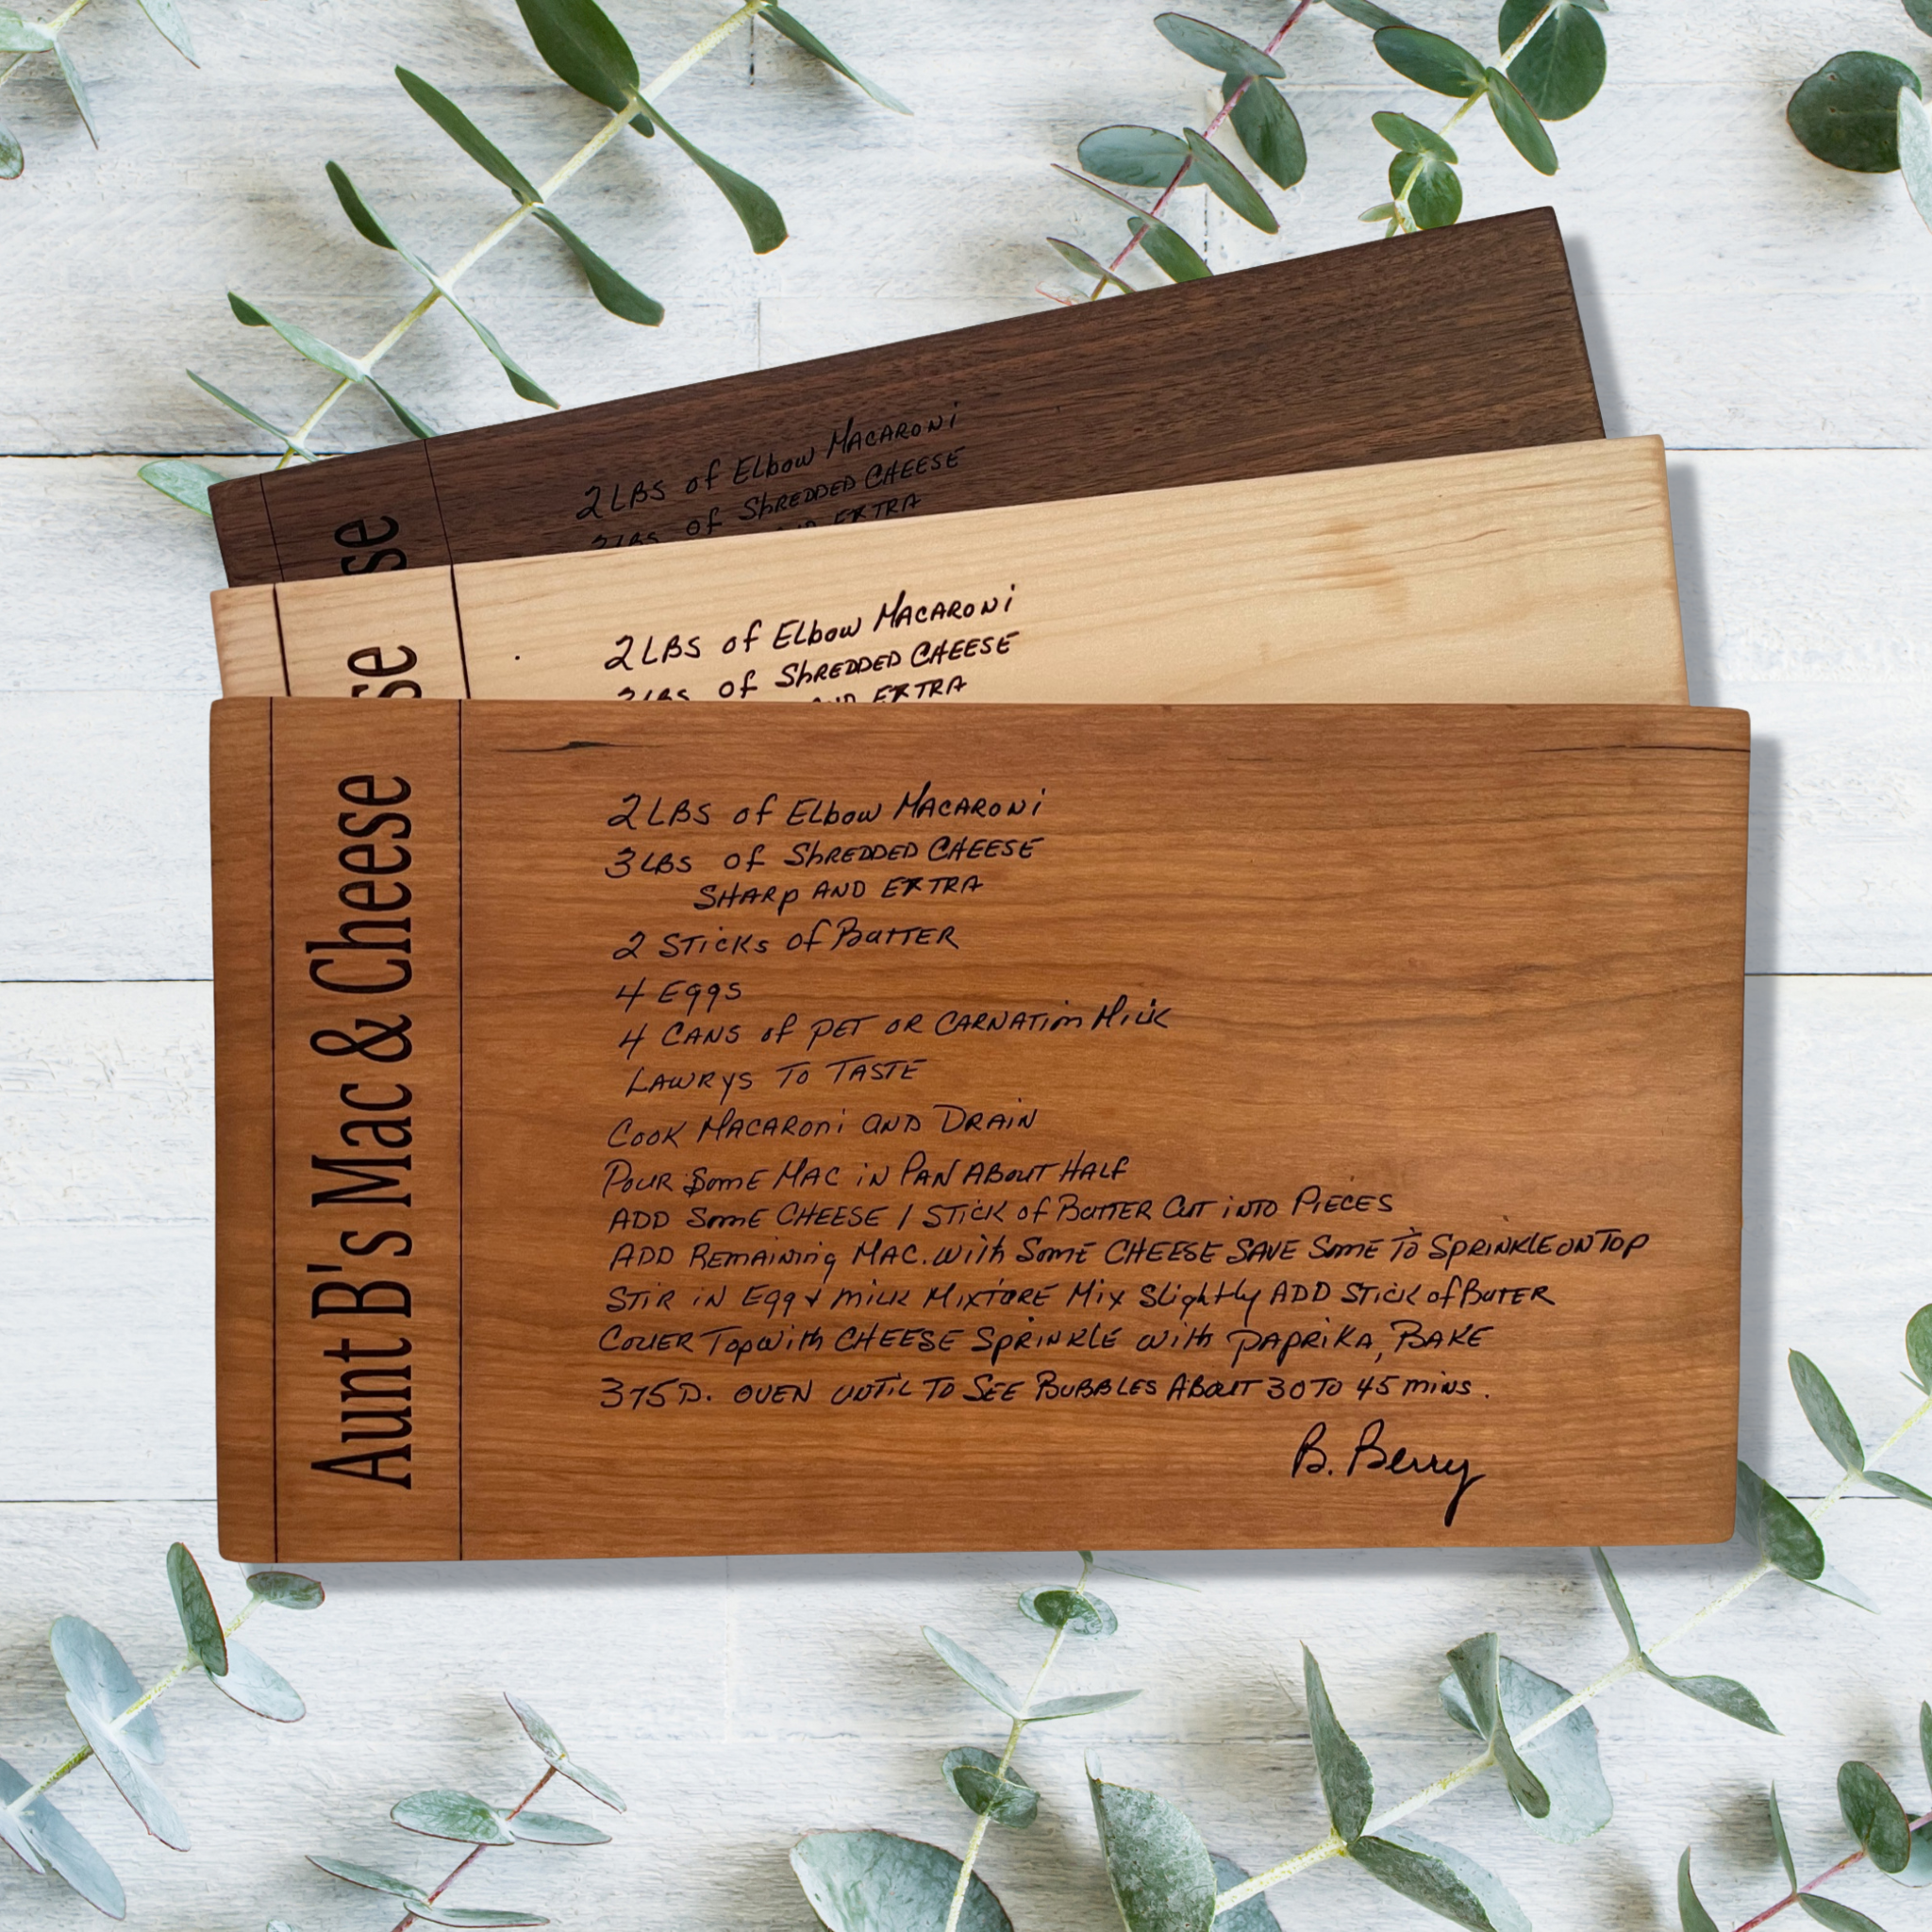 2 LBS of Elbow MACARONi
2 LBS of ShREDDED CHEESE
AND EXTRA
se
2 LBS of Elbow MACARONi
3 LBS of ShREDDED CHEESE
AND EXTRA
se
Aunt B's Mac & Cheese
2 LBS of Elbow MACARONi
3 LBS of ShREDDED CHEESE
SHARp AND EXTRA
2 STicKs of BuTTER
4 Eggs
4 CANS of pET OR CARNATion Milk
LAWRyS To TASTE
CooK MACARoni AND DRAiN
PouR SomE MAC iN PAN ABouT HALF
ADD SomE CHEESE 1 STicK of BuTTER CuT iNTO PiECES
ADD REMAining MAC. with SomE CHEESE SAVE SomE To SpRiNKlE oN Top
STiR iN Egg & milk MixTuRE Mix Slightly ADD STicK of BuTER
CoVER Top with CHEESE SpRiNKlE with pApRiKA, BAKE
375 D. oVEN uNTiL To SEE BuBBLES ABouT 30 To 45 miNS.
B. Berry